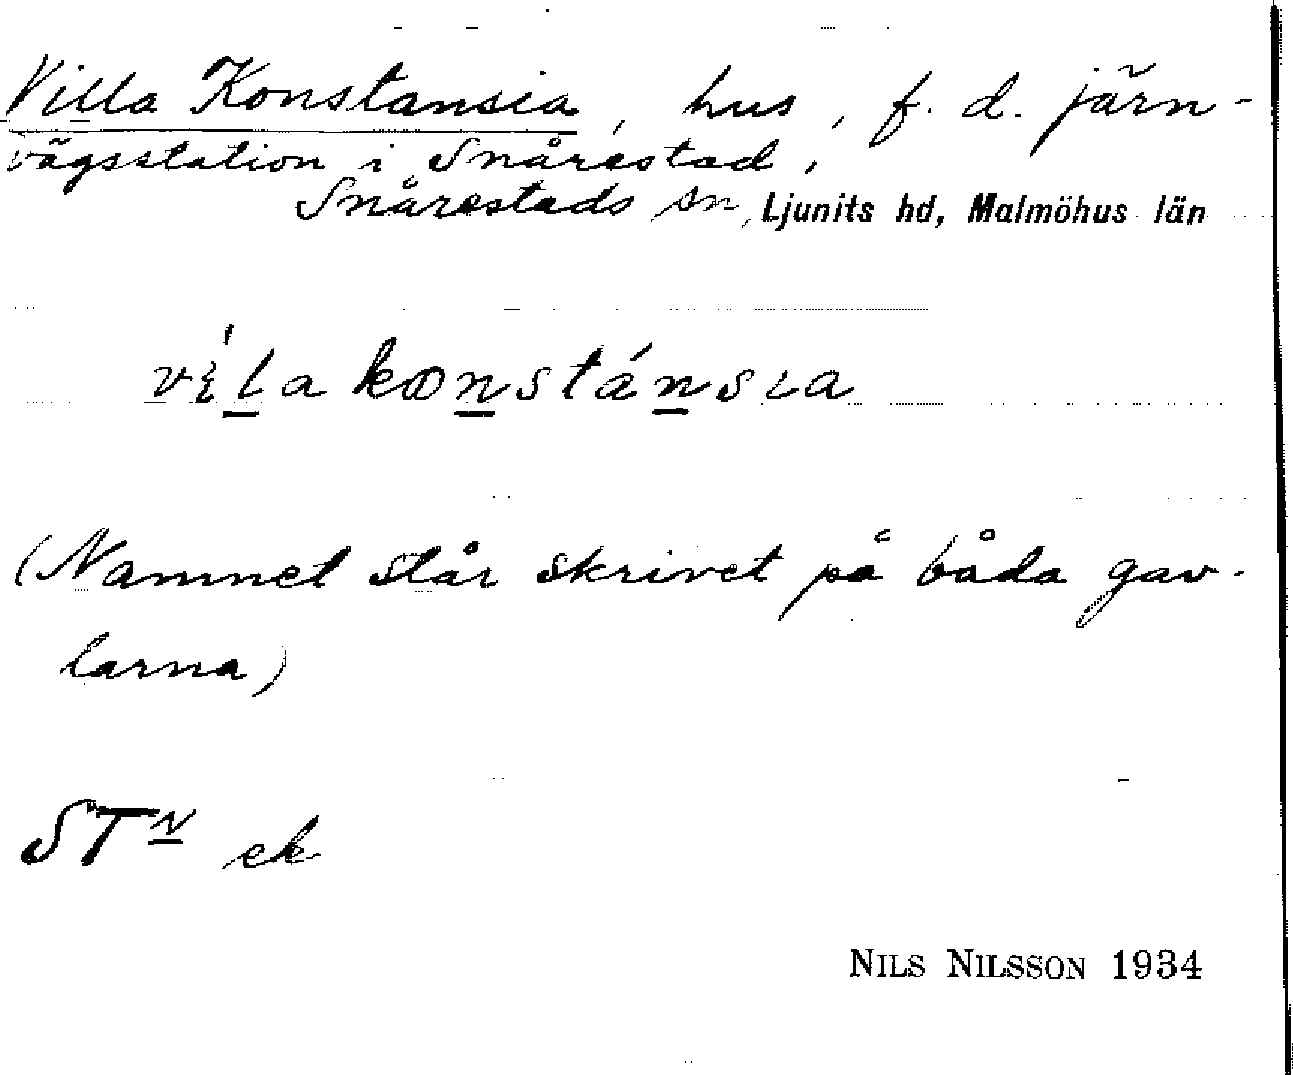 Villa Konstansia, hus, f. d. järn-
vägsstation i Snårestad,
Snårestads sn, Ljunits hd, Malmöhus län
vi̍l̲a kon̲stán̲sıa
(Namnet står skrivet på båda gav-
larna)
STᴺ ek
NILS NILSSON 1934